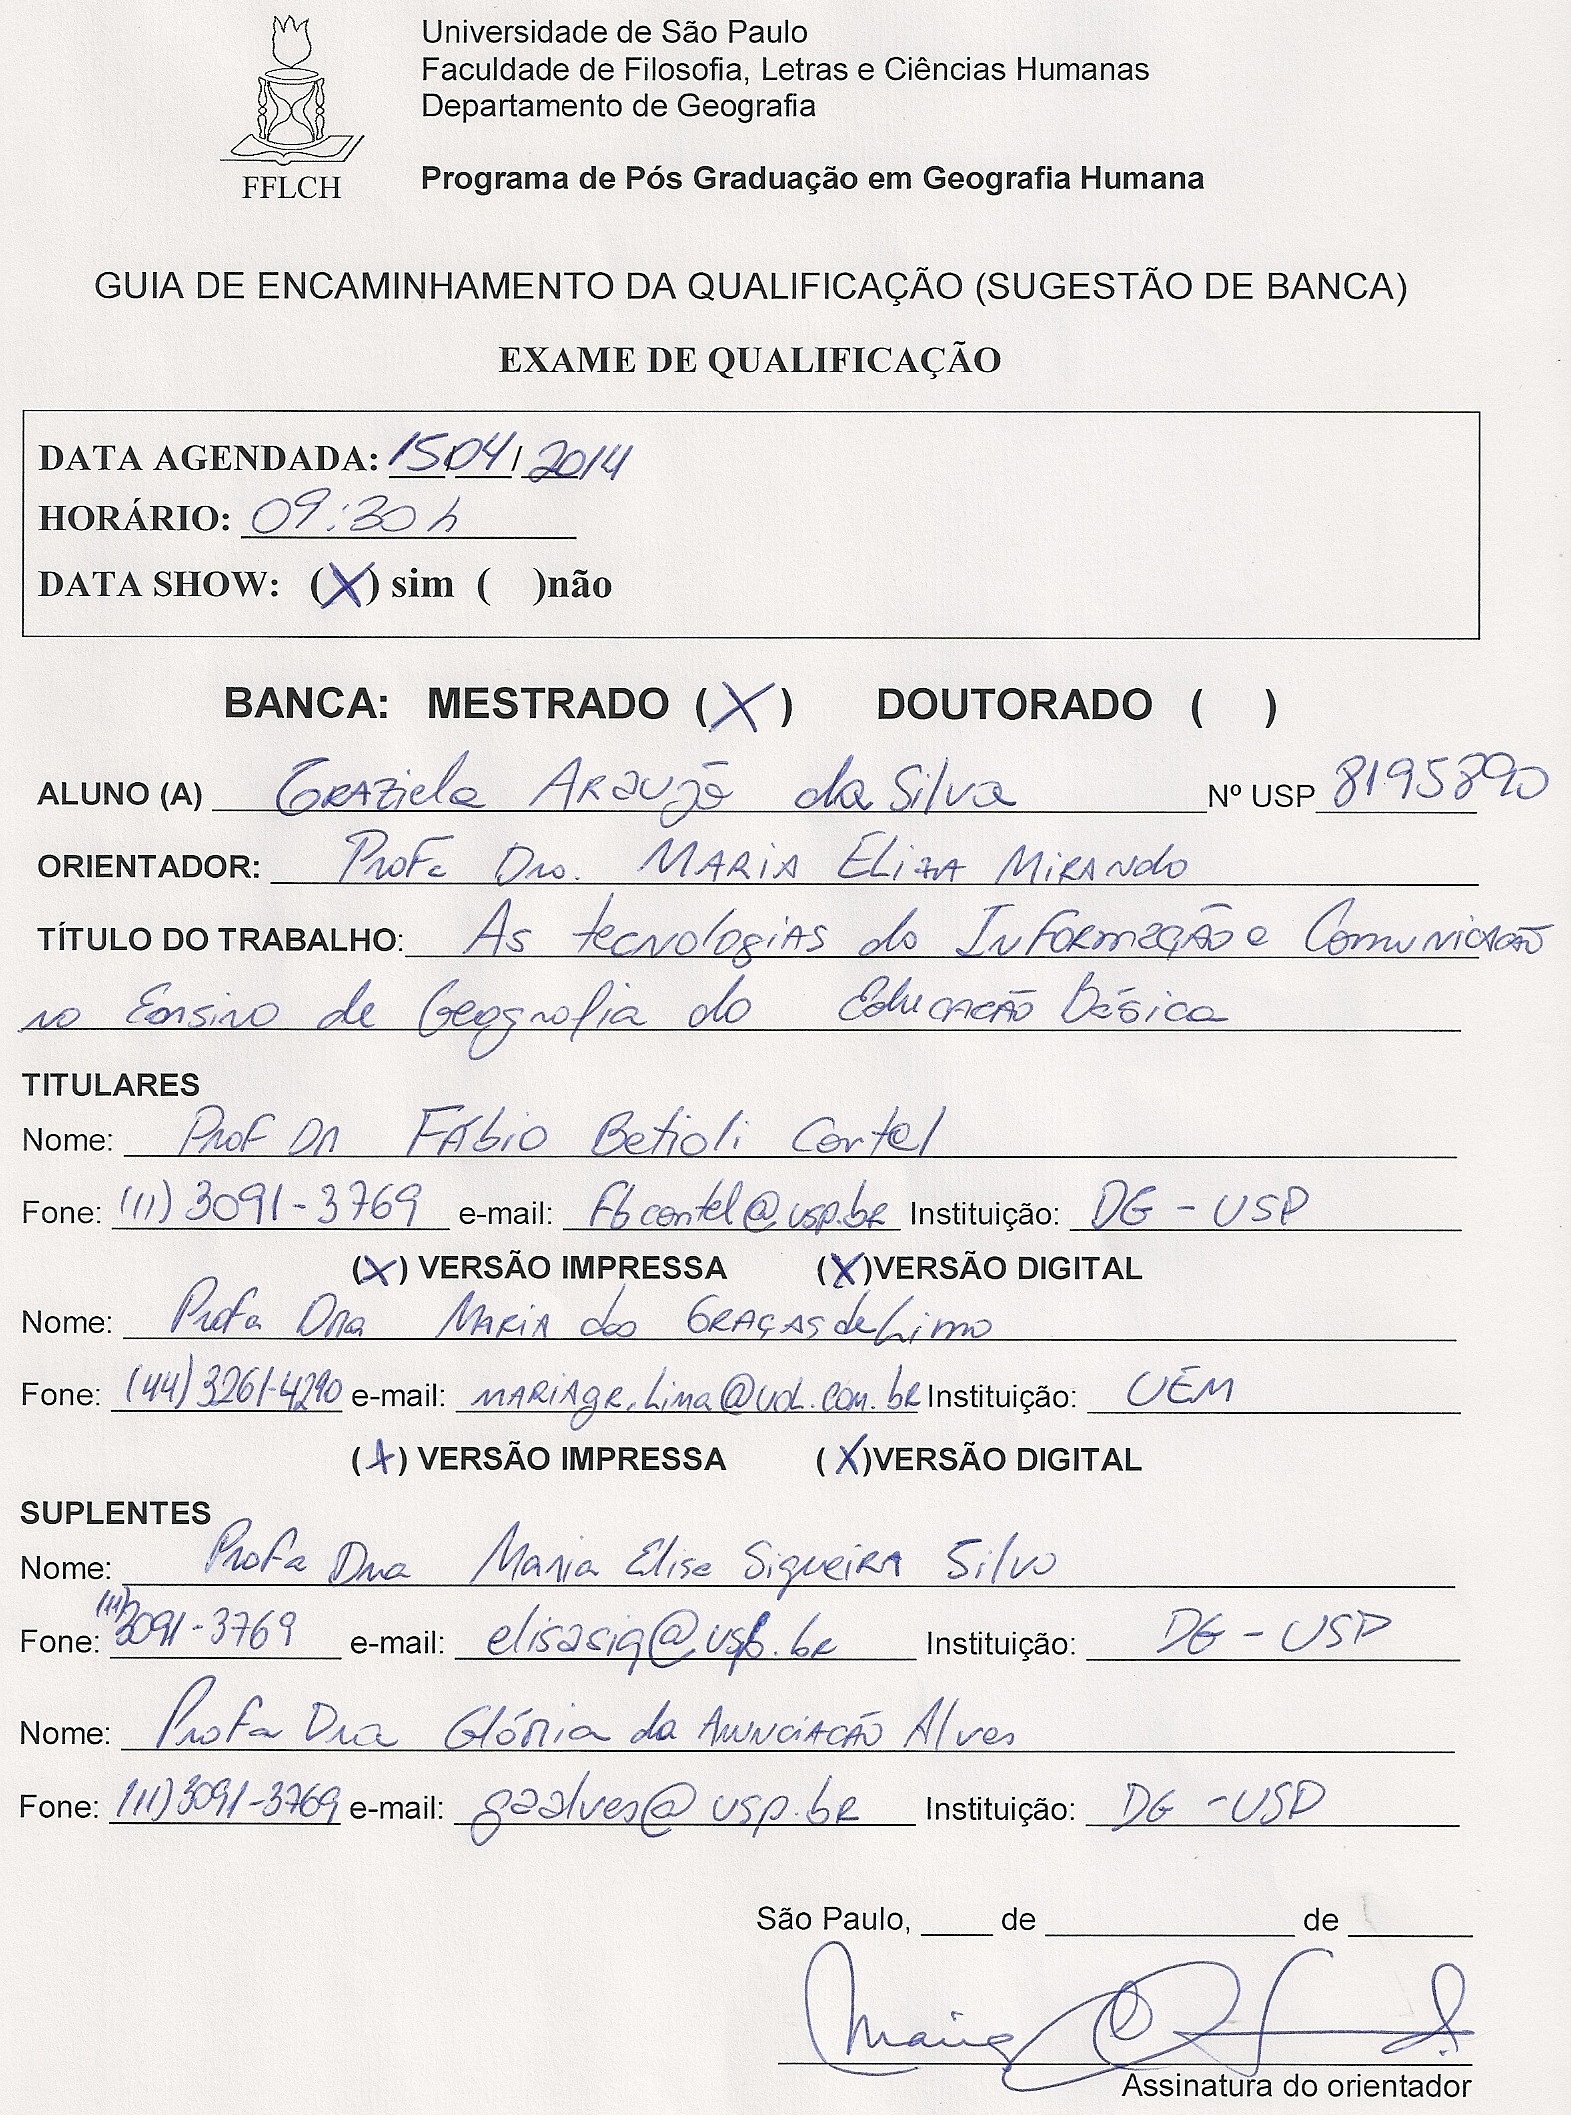 Universidade de São Paulo
Faculdade de Filosofia, Letras e Ciências Humanas
Departamento de Geografia
FFLCH
Programa de Pós Graduação em Geografia Humana
GUIA DE ENCAMINHAMENTO DA QUALIFICAÇÃO (SUGESTÃO DE BANCA)
EXAME DE QUALIFICAÇÃO
DATA AGENDADA: 15/04/2014
HORÁRIO: 09:30 h
DATA SHOW: (X) sim ( )não
BANCA: MESTRADO (X) DOUTORADO ( )
ALUNO (A) Graziela Araujo da Silva Nº USP 8195890
ORIENTADOR: Profa Dra. Maria Eliza Miranda
TÍTULO DO TRABALHO: As tecnologias da Informação e Comunicação
no Ensino de Geografia da Educação Básica
TITULARES
Nome: Prof Dr Fábio Betioli Contel
Fone: (11) 3091-3769 e-mail: fbcontel@usp.br Instituição: DG - USP
(X) VERSÃO IMPRESSA (X)VERSÃO DIGITAL
Nome: Profa Dra Maria das Graças de Lima
Fone: (44) 3261-4290 e-mail: mariagr.lima@uol.com.br Instituição: UEM
(X) VERSÃO IMPRESSA (X)VERSÃO DIGITAL
SUPLENTES
Nome: Profa Dra Maria Elisa Siqueira Silva
Fone: (11) 3091-3769 e-mail: elisasiq@usp.br Instituição: DG - USP
Nome: Profa Dra Glória da Anunciação Alves
Fone: (11) 3091-3769 e-mail: gaalves@usp.br Instituição: DG - USP
São Paulo, ____ de ______________ de _______
Assinatura do orientador